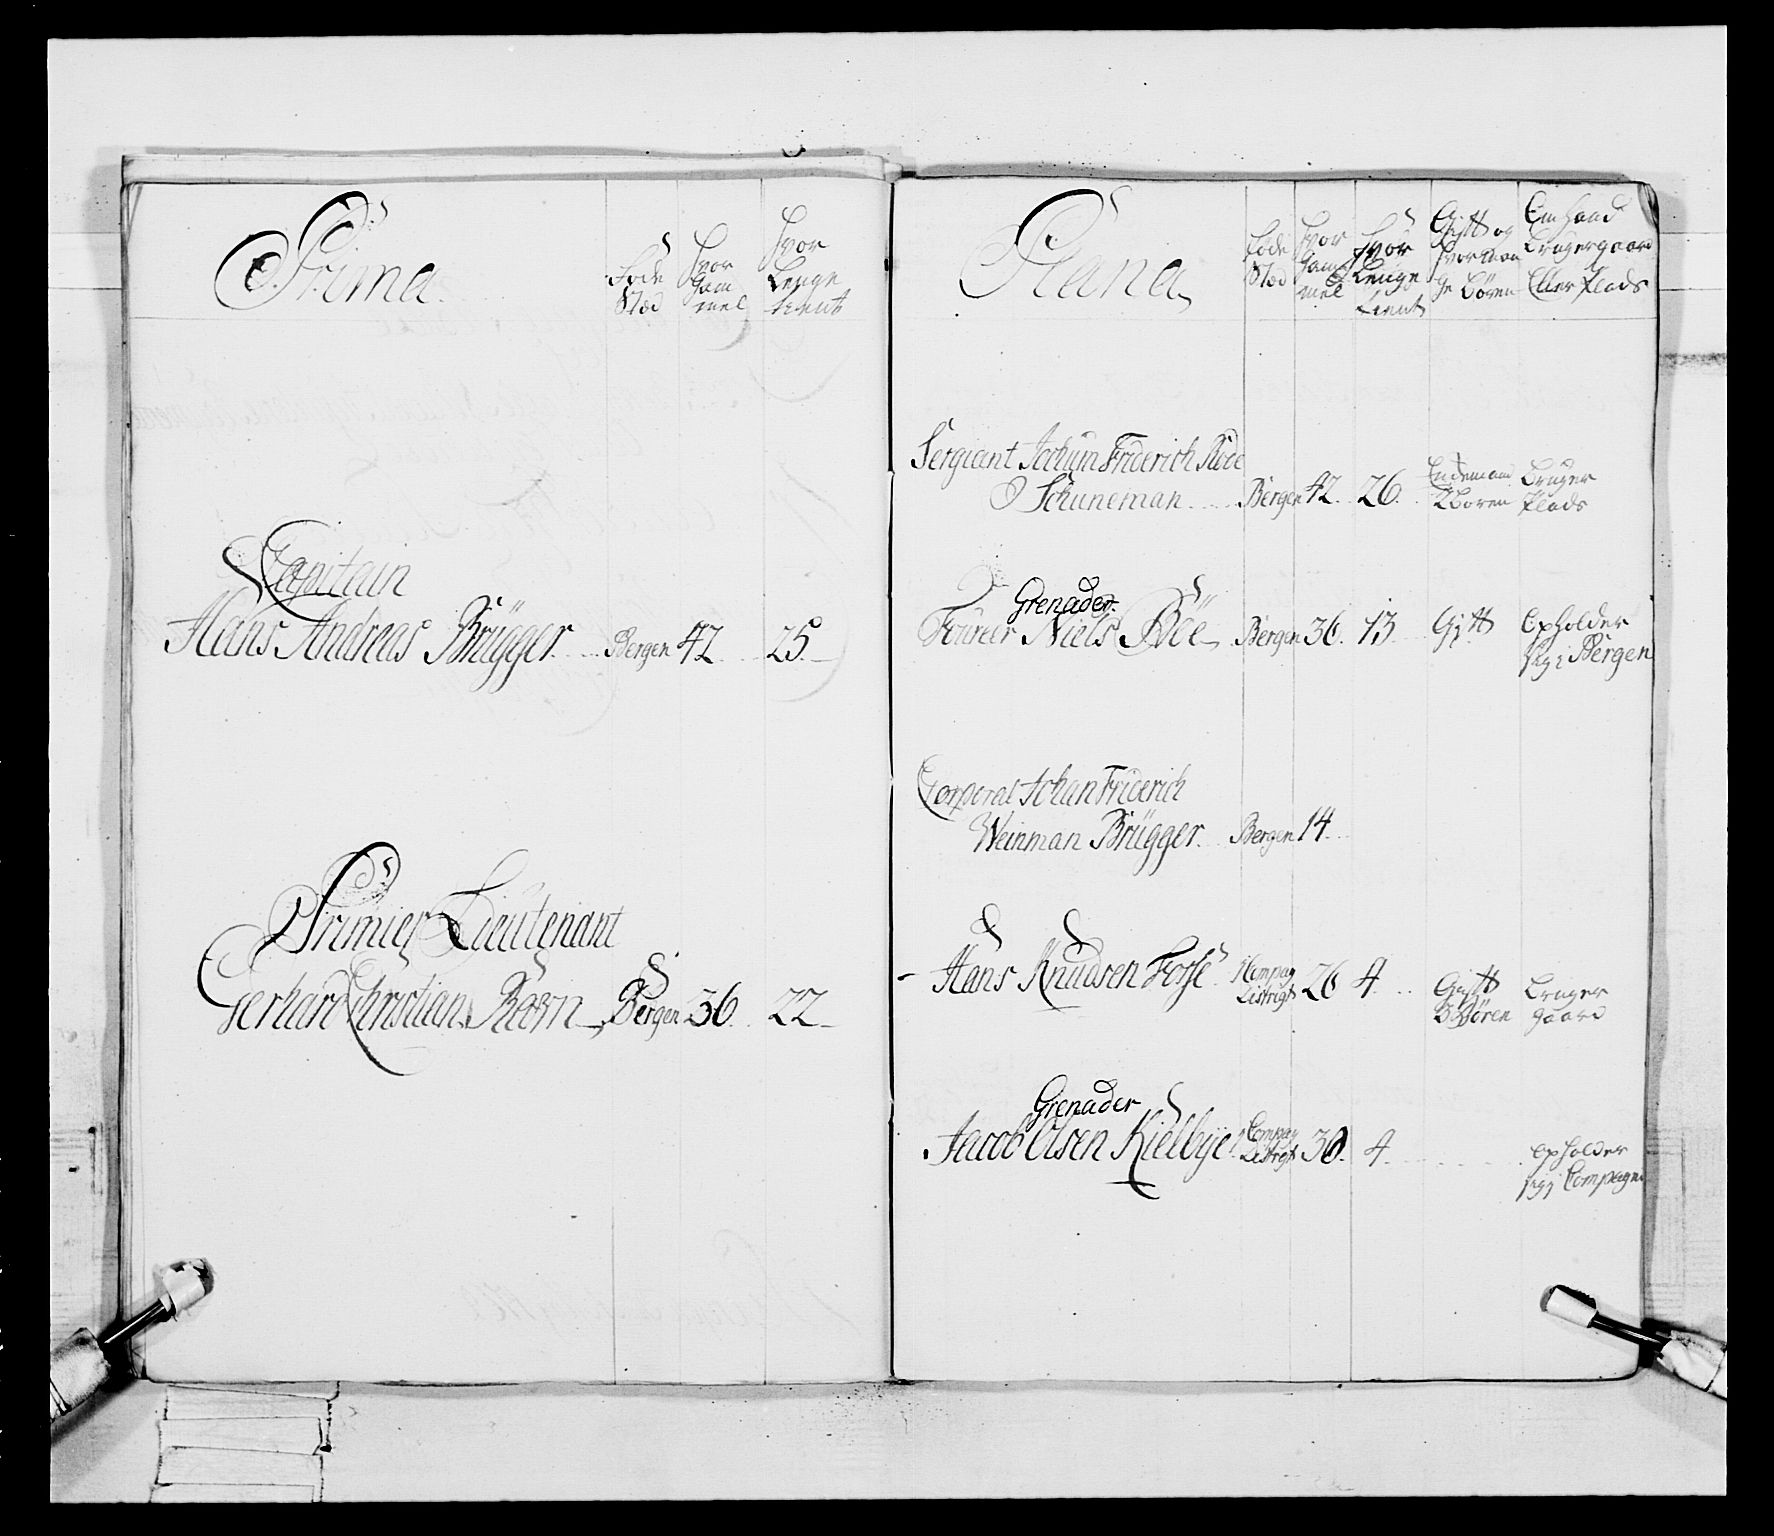 Prima
Føde
Stæd
Hvor
Gam
mel
Hvor
Lenge
tient
Capitain
Hans Andreas Brügger Bergen 42 25
Primier Lieutenant
Gerhard Christian Bergen 36 22
Plana
Føde
Stæd
Hvor
Gam
mel
Hvor
Lenge
tient
Gift og
Hvor man
ge Børen
Em haand
Bruger gaard
Eller Plads
Sergiant Jochum Friderich
Schuneman Bergen 42 26
Enckemand
2 Boren
Bruger
Plads
Grenader
Foureer Niels Böe Bergen 36 13 Gift
Opholder
sig i Bergen
Corporal Johan Friderich
Weinman Brügger Bergen 14
Hans Knudsen Fosse Compag
Distrigt 26 4
Gift
3 Børen
Bruger
gaard
Grenader
Jacob Olsen Kielbye Compag
Distrigt 30 4
opholder
sig i Compagni